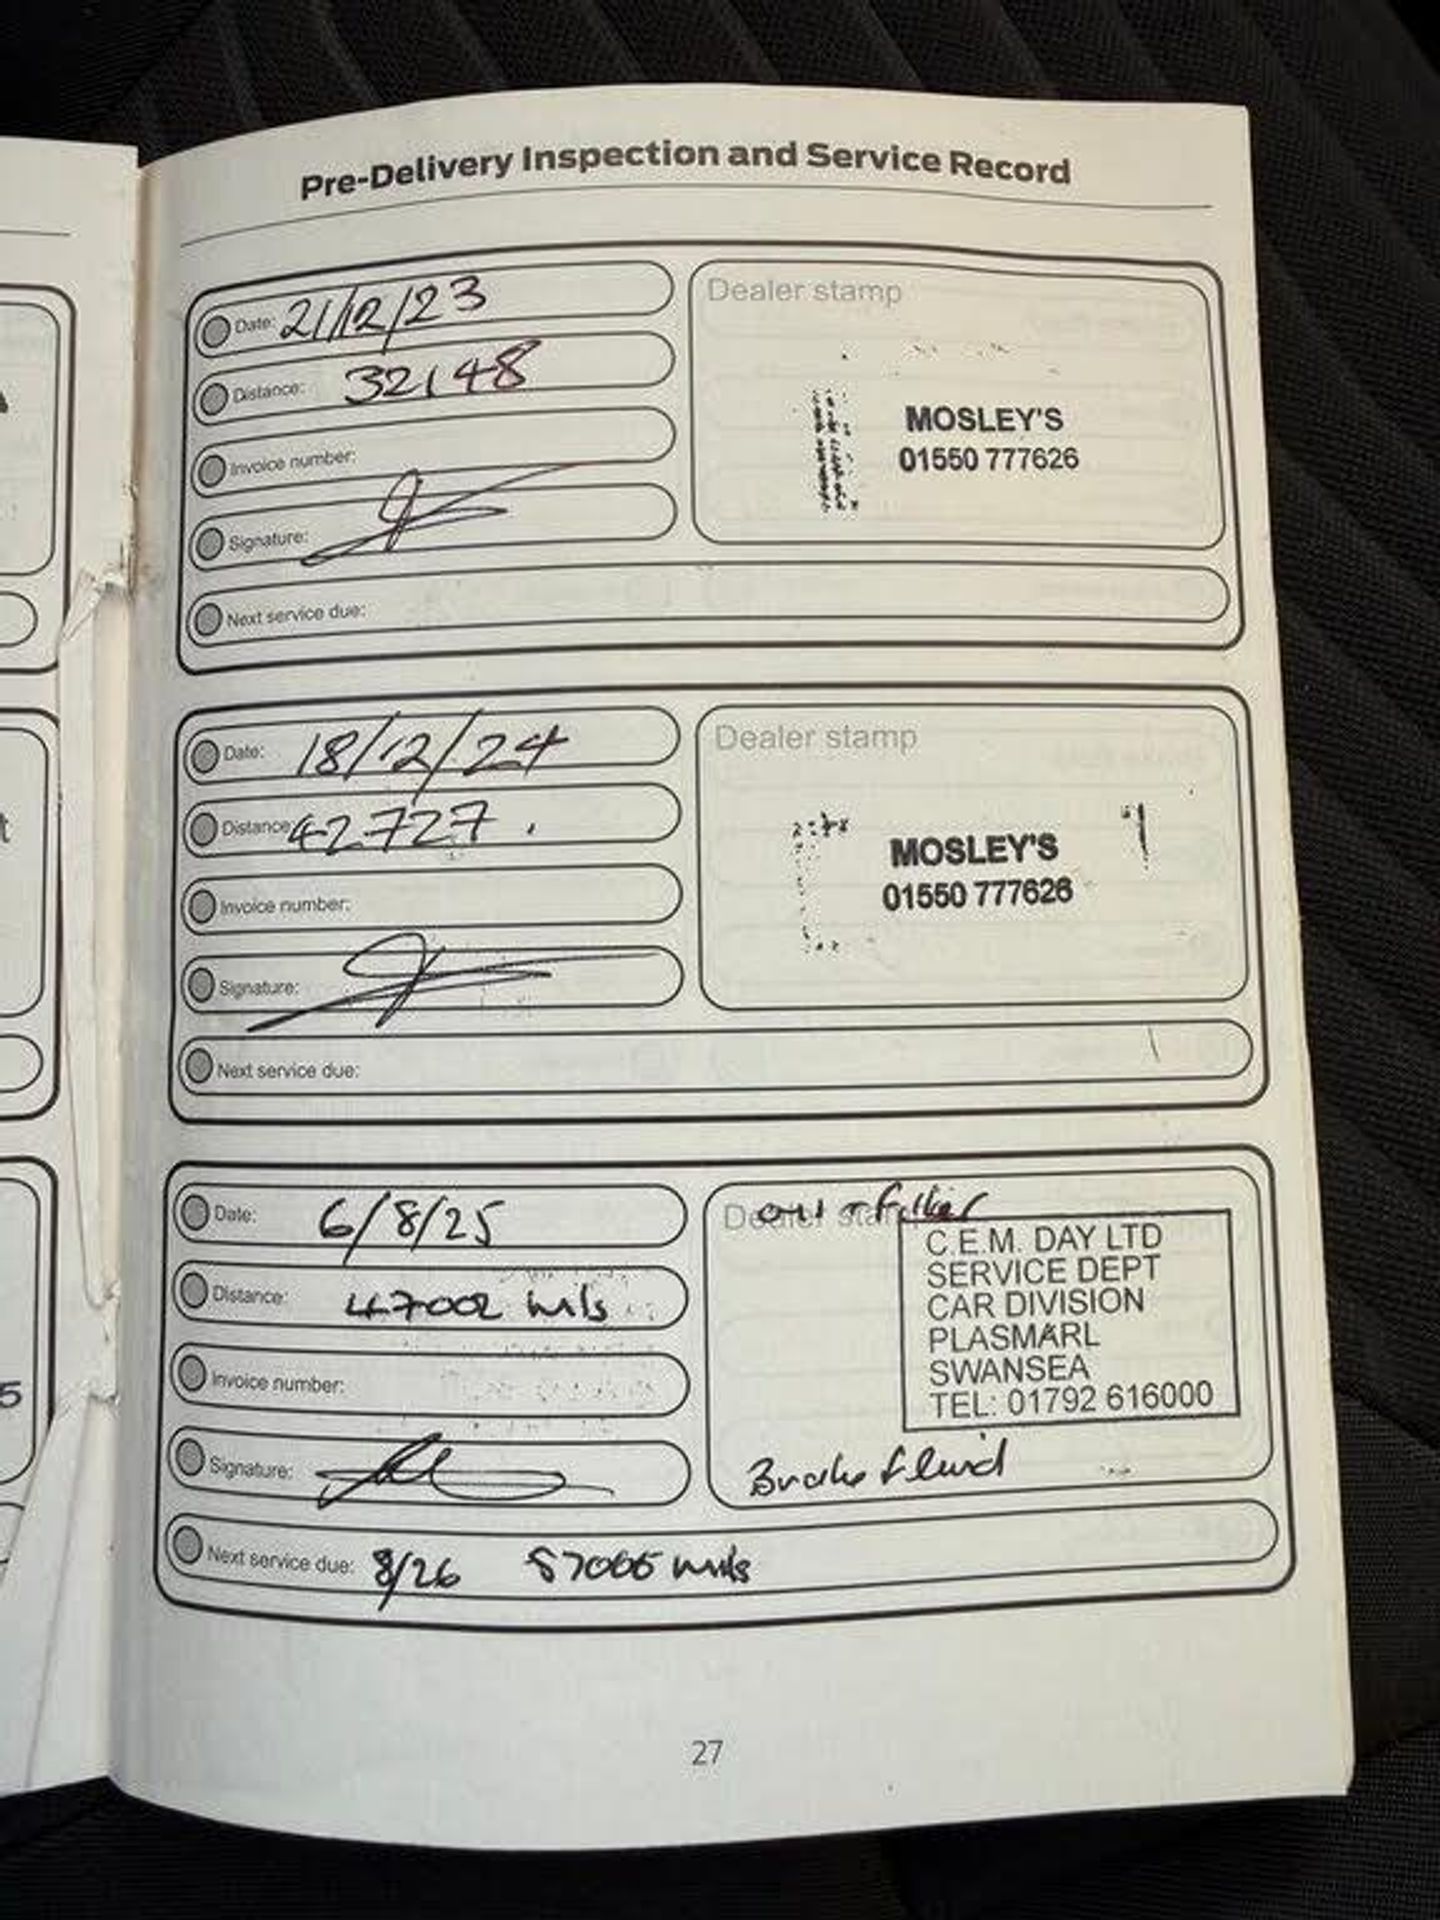 Pre-Delivery Inspection and Service Record
Date: 21/12/23
Distance: 32148
Invoice number:
Signature:
Next service due:
Dealer stamp
MOSLEY'S
01550 777626
Date: 18/12/24
Distance: 42727.
Invoice number:
Signature:
Next service due:
Dealer stamp
MOSLEY'S
01550 777626
Date: 6/8/25
Distance: 47002 mls
Invoice number:
Signature:
Dealer stamp
oil + filter
C.E.M. DAY LTD
SERVICE DEPT
CAR DIVISION
PLASMARL
SWANSEA
TEL: 01792 616000
Brake fluid
Next service due: 8/26 mls
27
t
5